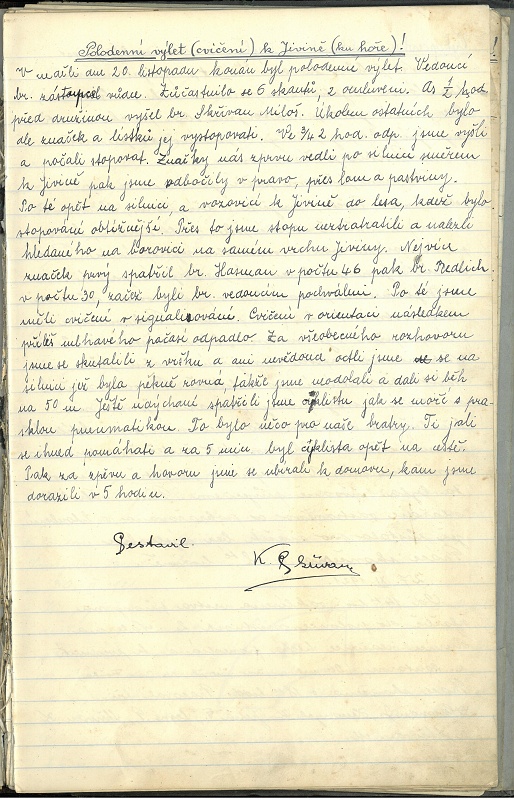 Polodenní výlet (cvičení) k Jivině (ku hoře)!
V neděli dne 20. listopadu konán byl polodenní výlet. Vedoucí
br. zástupce vůdce. Zúčastnilo se 6 skautů, 2 omluveni. As ½ hod.
před družinou vyšel br. Skřivan Miloš. Úkolem ostatních bylo
dle značek a lístků jej vystopovati. Ve ¾ 2 hod. odp. jsme vyšli
a počali stopovat. Značky nás zprvu vedli po silnici směrem
k Jivině pak jsme odbočily v pravo, přes lom a pastviny.
Po té opět na silnici, a vozovici k Jivině do lesa, kdež bylo
stopování obtížnější. Přes to jsme stopu neztratili a nalezli
hledaného na borovici na samém vrchu Jiviny. Nejvíce
značek prvý spatřil br. Hasman v počtu 46 pak br. Redlich
v počtu 30, začež byli br. vedoucím pochváleni. Po té jsme
měli cvičení v signalisování. Cvičení v orientaci následkem
příliš mlhavého počasí odpadlo. Za všeobecného rozhovoru
jsme se skutálili z vršku a ani nevědouce octli jsme se na
silnici jež byla pěkně rovná, takže jsme neodolali a dali si běh
na 50 m. Ještě udýchaní spatřili jsme cyklistu jak se moří s pra-
sklou pneumatikou. To bylo něco pro naše bratry. Ti jali
se ihned pomáhati a za 5 min. byl cyklista opět na cestě.
Pak za zpěvu a hovoru jsme se ubírali k domovu, kam jsme
dorazili v 5 hodin.
Sestavil.
K. Skřivan